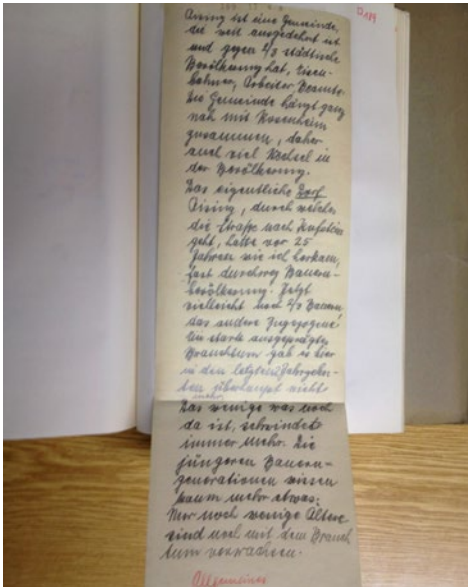 Aising ist eine Gemeinde,
die weit ausgedehnt ist
und gegen 2/3 städtische
Bevölkerung hat, Eisen-
bahner, Arbeiter, Beamte.
Die Gemeinde hängt ganz
nah mit Rosenheim
zusammen, daher
auch viel Wechsel in
der Bevölkerung.
Das eigentliche Dorf
Aising, durch welches
die Straße nach Kufstein
geht, hatte vor 25
Jahren wie ich herkam,
fast durchweg Bauern-
bevölkerung. Jetzt
vielleicht noch 2/3 Bauern,
das andere Zugezogene.
Ein stark ausgeprägtes
Brauchtum gab es hier
in den letzten Jahrzehn-
ten überhaupt nicht
mehr.
Das wenige was noch
da ist, schwindet
immer mehr. Die
jüngeren Bauern-
generationen wissen
kaum mehr etwas.
Nur noch wenige Ältere
sind noch mit dem Brauch
tum verwachsen.
Allgemeines